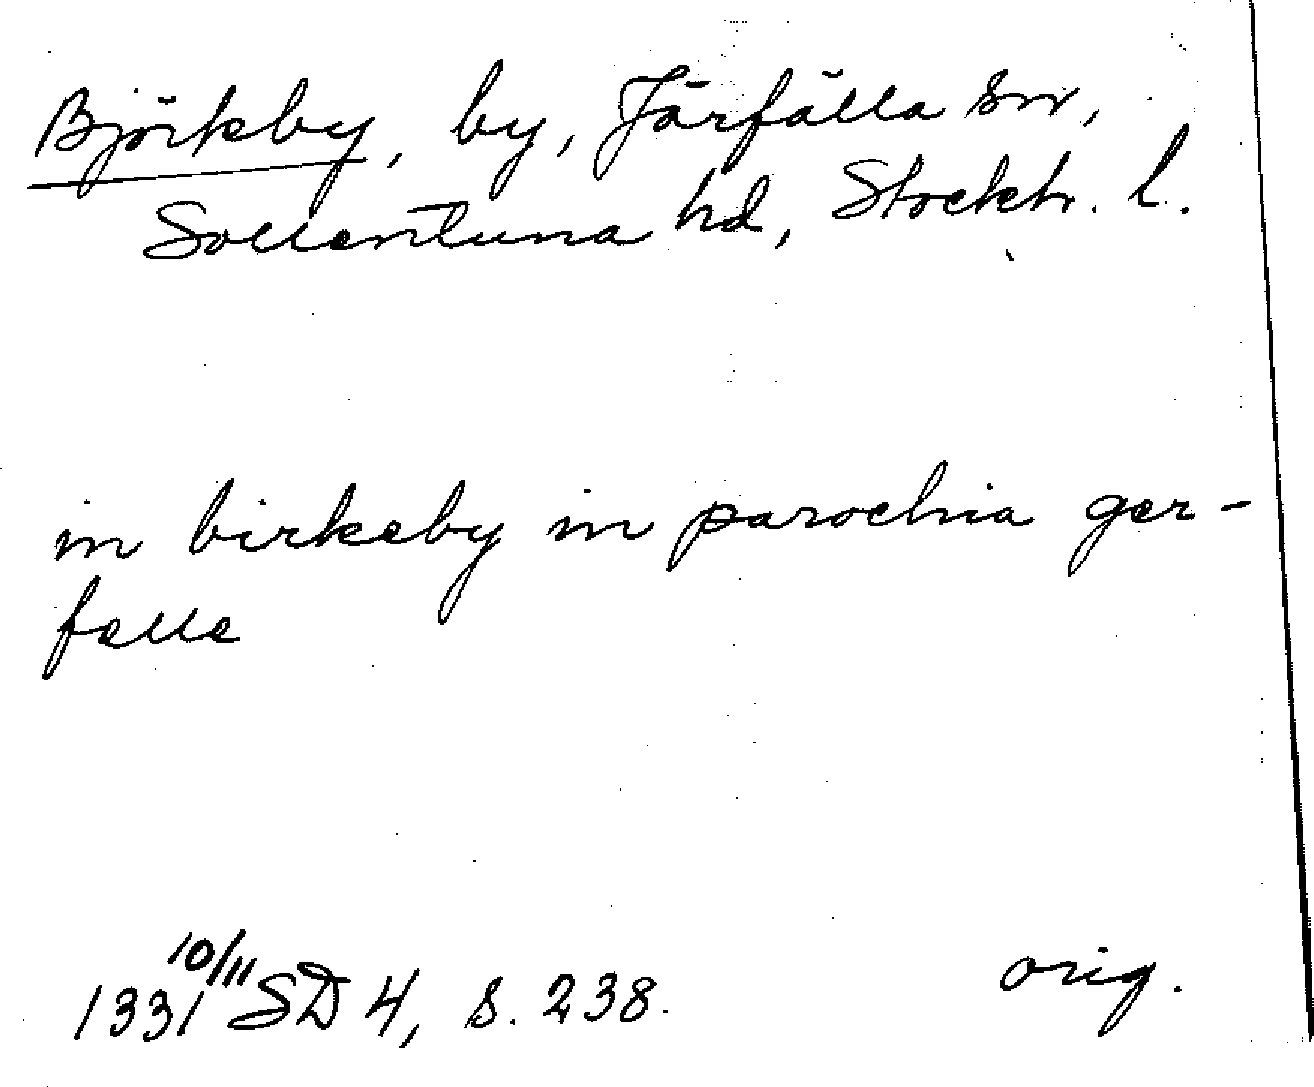 Björkby, by, Järfälla sn,
Sollentuna hd, Stockh. l.
in birkeby in parochia ger-
felle
1331 10/11 SD 4, s. 238. orig.